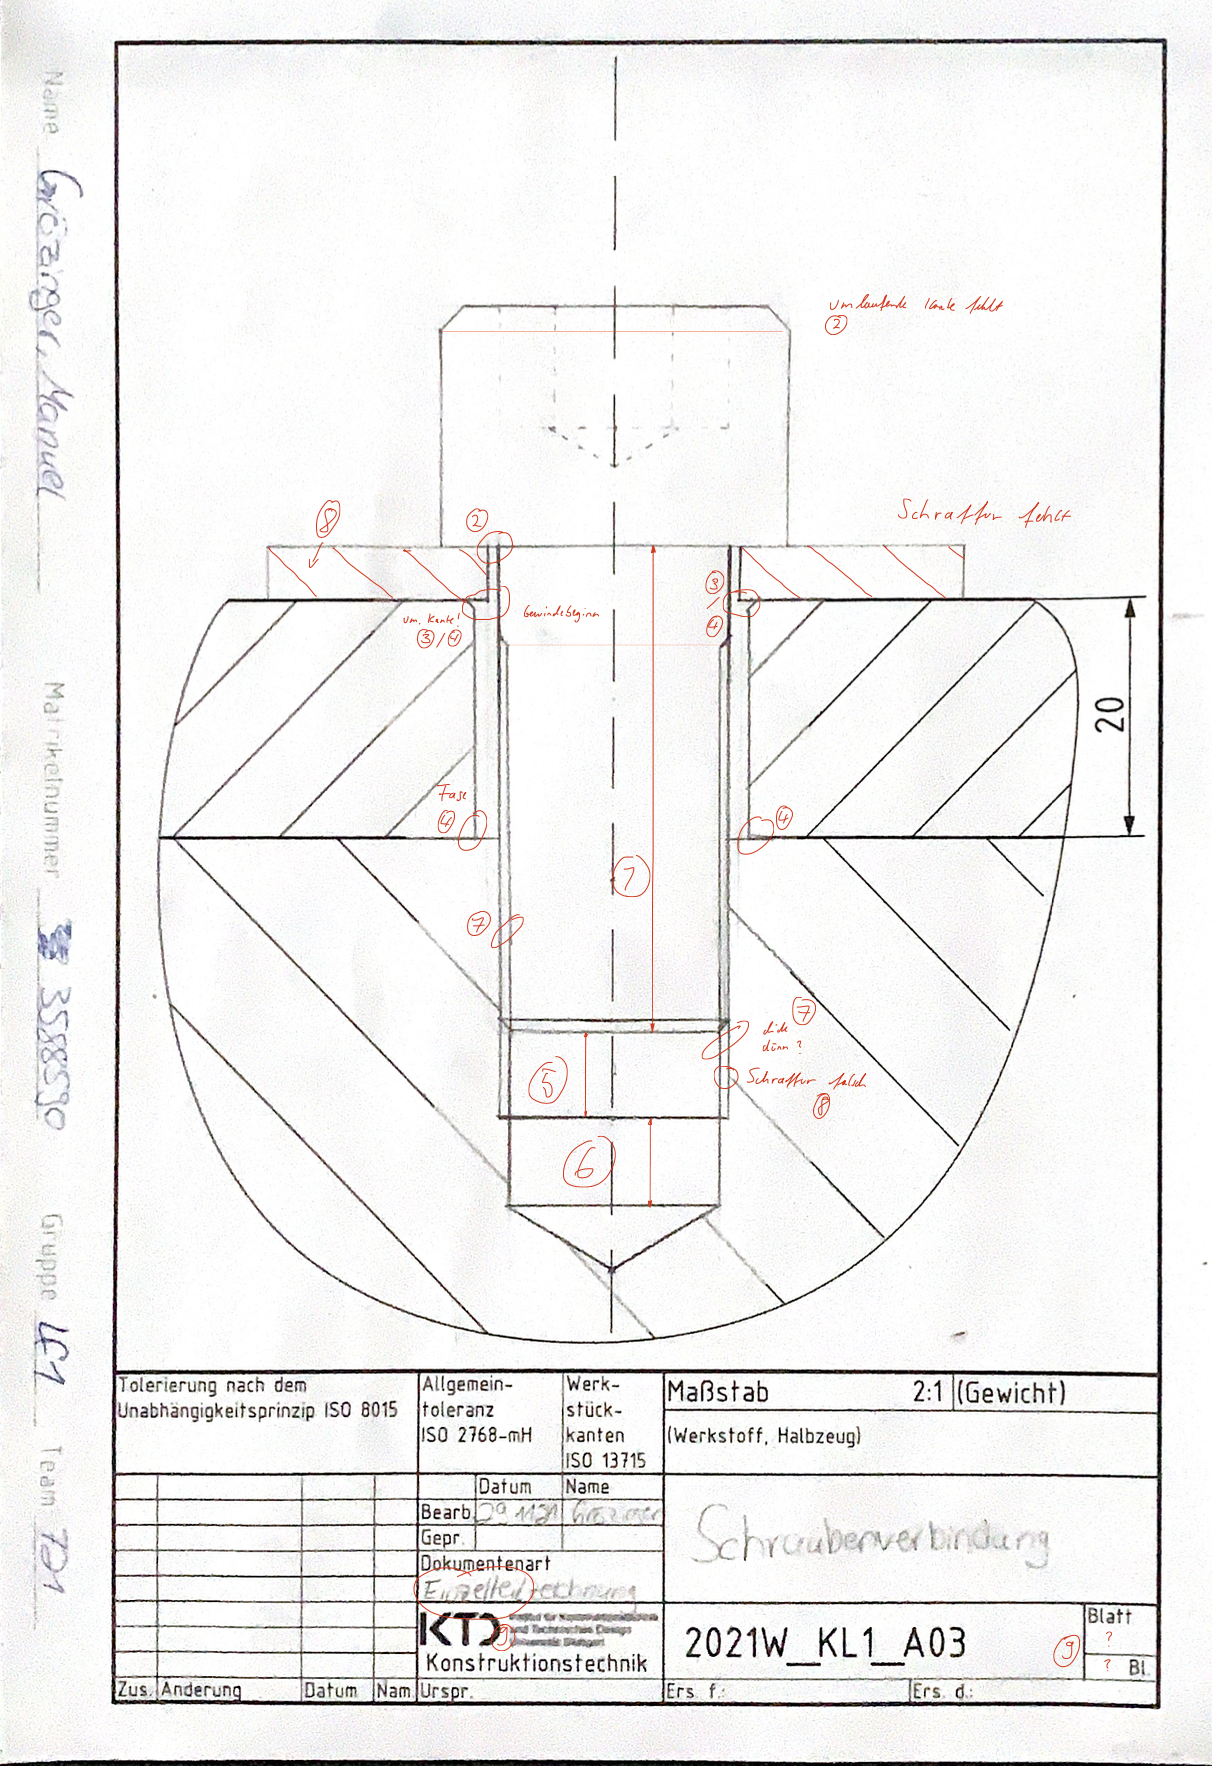 Name Grözinger, Manuel
Matrikelnummer 3588590
Gruppe 4E1
Team TD1
umlaufende Kante fehlt
②
⑧
②
Schraffur fehlt
③
/
④
um. Kante!
③/④
Gewindebeginn
20
Fase
④
④
①
⑦
⑦
dick
dünn?
⑤
Schraffur falsch
⑧
⑥
Tolerierung nach dem
Unabhängigkeitsprinzip ISO 8015
Allgemein-
toleranz
ISO 2768-mH
Werk-
stück-
kanten
ISO 13715
Maßstab 2:1 (Gewicht)
(Werkstoff, Halbzeug)
Datum Name
Bearb. 29.11.21 Grözinger
Gepr.
Dokumentenart
Einzelteilzeichnung
Schraubenverbindung
KTD
Institut für Konstruktionstechnik
und Technisches Design
Universität Stuttgart
⑨
Konstruktionstechnik
2021W_KL1_A03
⑨
Blatt
?
? Bl.
Zus. Änderung Datum Nam. Urspr. Ers. f.: Ers. d.: